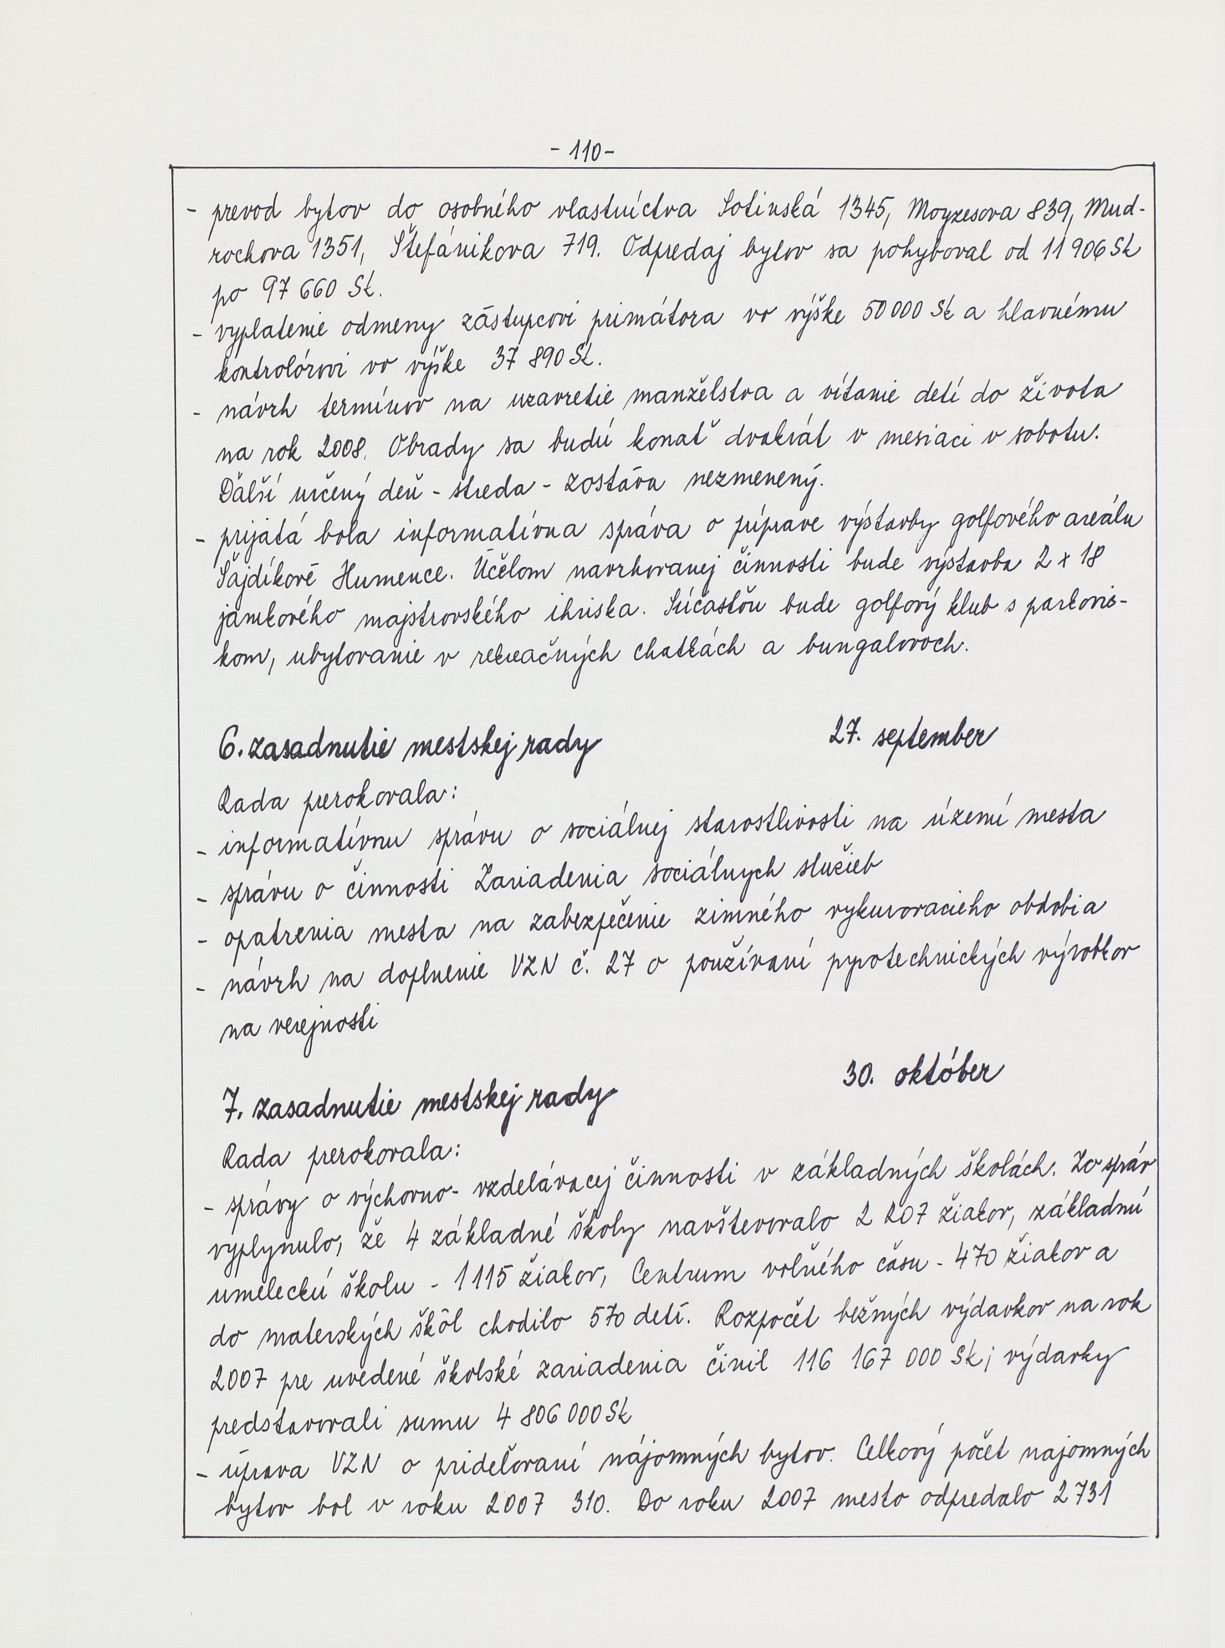 - 110 -
- prevod bytov do osobného vlastníctva Sotinská 1345, Moyzesova 839, Mud-
rochova 1351, Štefánikova 719. Odpredaj bytov sa pohyboval od 11 906 Sk
po 97 660 Sk.
- vyplatenie odmeny zástupcovi primátora vo výške 50 000 Sk a hlavnému
kontrolórovi vo výške 37 890 Sk.
- návrh termínov na uzavretie manželstva a vítanie detí do života
na rok 2008. Obrady sa budú konať dvakrát v mesiaci v sobotu.
Ďalší určený deň - streda - zostáva nezmenený.
- prijatá bola informatívna správa o príprave výstavby golfového areálu
Šajdíkové Humence. Účelom navrhovanej činnosti bude výstavba 2 x 18
jamkového majstrovského ihriska. Súčasťou bude golfový klub s parkovis-
kom, ubytovanie v rekreačných chatkách a bungalovoch.
6. zasadnutie mestskej rady 27. september
Rada prerokovala:
- informatívnu správu o sociálnej starostlivosti na území mesta
- správu o činnosti Zariadenia sociálnych služieb
- opatrenia mesta na zabezpečenie zimného vykurovacieho obdobia
- návrh na doplnenie VZN č. 27 o používaní pyrotechnických výrobkov
na verejnosti
7. zasadnutie mestskej rady 30. október
Rada prerokovala:
- správy o výchovno-vzdelávacej činnosti v základných školách. Zo správ
vyplynulo, že 4 základné školy navštevovalo 2 207 žiakov, základnú
umeleckú školu - 1115 žiakov, Centrum voľného času - 470 žiakov a
do materských škôl chodilo 570 detí. Rozpočet bežných výdavkov na rok
2007 pre uvedené školské zariadenia činil 116 167 000 Sk; výdavky
predstavovali sumu 4 806 000 Sk
- úprava VZN o prideľovaní nájomných bytov. Celkový počet najomných
bytov bol v roku 2007 310. Do roku 2007 mesto odpredalo 2 731